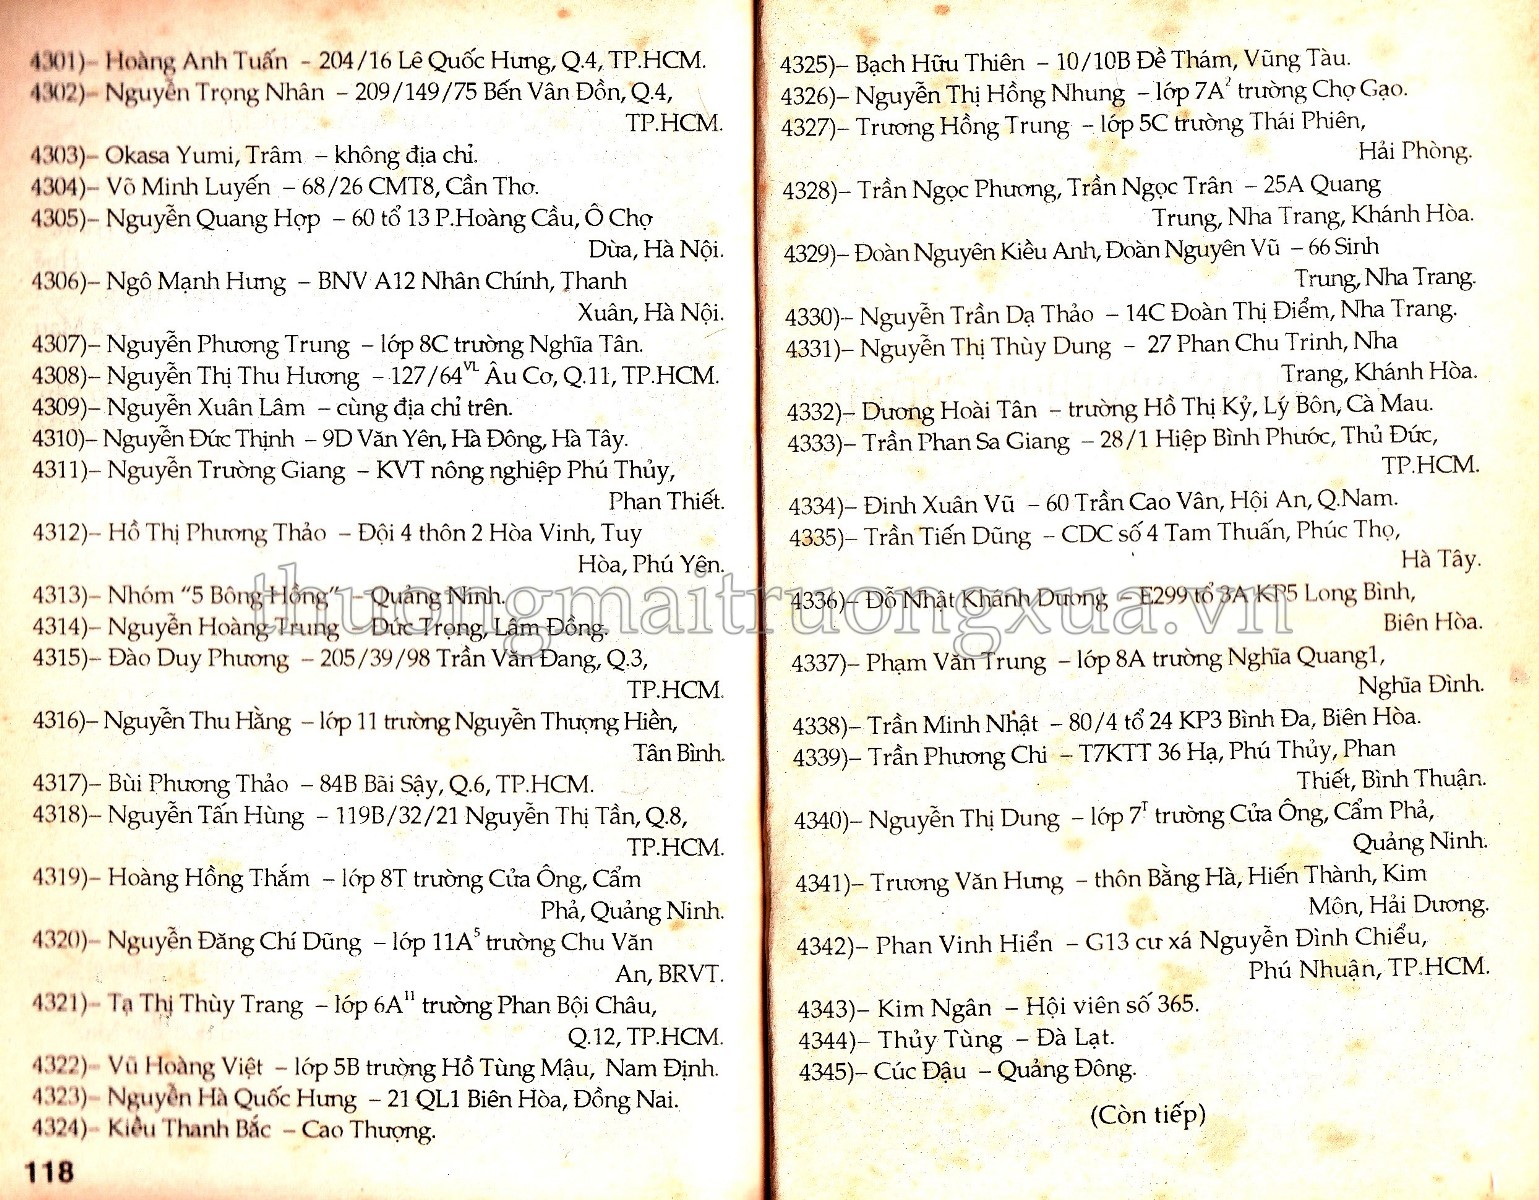 4301)– Hoàng Anh Tuấn – 204/16 Lê Quốc Hưng, Q.4, TP.HCM.
4302)– Nguyễn Trọng Nhân – 209/149/75 Bến Vân Đồn, Q.4,
TP.HCM.
4303)– Okasa Yumi, Trâm – không địa chỉ.
4304)– Võ Minh Luyến – 68/26 CMT8, Cần Thơ.
4305)– Nguyễn Quang Hợp – 60 tổ 13 P.Hoàng Cầu, Ô Chợ
Dừa, Hà Nội.
4306)– Ngô Mạnh Hưng – BNV A12 Nhân Chính, Thanh
Xuân, Hà Nội.
4307)– Nguyễn Phương Trung – lớp 8C trường Nghĩa Tân.
4308)– Nguyễn Thị Thu Hương – 127/64VL Âu Cơ, Q.11, TP.HCM.
4309)– Nguyễn Xuân Lâm – cùng địa chỉ trên.
4310)– Nguyễn Đức Thịnh – 9D Văn Yên, Hà Đông, Hà Tây.
4311)– Nguyễn Trường Giang – KVT nông nghiệp Phú Thủy,
Phan Thiết.
4312)– Hồ Thị Phương Thảo – Đội 4 thôn 2 Hòa Vinh, Tuy
Hòa, Phú Yên.
4313)– Nhóm “5 Bông Hồng” – Quảng Ninh.
4314)– Nguyễn Hoàng Trung – Đức Trọng, Lâm Đồng.
4315)– Đào Duy Phương – 205/39/98 Trần Văn Đang, Q.3,
TP.HCM.
4316)– Nguyễn Thu Hằng – lớp 11 trường Nguyễn Thượng Hiền,
Tân Bình.
4317)– Bùi Phương Thảo – 84B Bãi Sậy, Q.6, TP.HCM.
4318)– Nguyễn Tấn Hùng – 119B/32/21 Nguyễn Thị Tần, Q.8,
TP.HCM.
4319)– Hoàng Hồng Thắm – lớp 8T trường Cửa Ông, Cẩm
Phả, Quảng Ninh.
4320)– Nguyễn Đăng Chí Dũng – lớp 11A5 trường Chu Văn
An, BRVT.
4321)– Tạ Thị Thùy Trang – lớp 6A11 trường Phan Bội Châu,
Q.12, TP.HCM.
4322)– Vũ Hoàng Việt – lớp 5B trường Hồ Tùng Mậu, Nam Định.
4323)– Nguyễn Hà Quốc Hưng – 21 QL1 Biên Hòa, Đồng Nai.
4324)– Kiều Thanh Bắc – Cao Thượng.
118
4325)– Bạch Hữu Thiên – 10/10B Đề Thám, Vũng Tàu.
4326)– Nguyễn Thị Hồng Nhung – lớp 7A2 trường Chợ Gạo.
4327)– Trương Hồng Trung – lớp 5C trường Thái Phiên,
Hải Phòng.
4328)– Trần Ngọc Phương, Trần Ngọc Trân – 25A Quang
Trung, Nha Trang, Khánh Hòa.
4329)– Đoàn Nguyên Kiều Anh, Đoàn Nguyên Vũ – 66 Sinh
Trung, Nha Trang.
4330)– Nguyễn Trần Dạ Thảo – 14C Đoàn Thị Điểm, Nha Trang.
4331)– Nguyễn Thị Thùy Dung – 27 Phan Chu Trinh, Nha
Trang, Khánh Hòa.
4332)– Dương Hoài Tân – trường Hồ Thị Kỷ, Lý Bôn, Cà Mau.
4333)– Trần Phan Sa Giang – 28/1 Hiệp Bình Phước, Thủ Đức,
TP.HCM.
4334)– Đinh Xuân Vũ – 60 Trần Cao Vân, Hội An, Q.Nam.
4335)– Trần Tiến Dũng – CDC số 4 Tam Thuấn, Phúc Thọ,
Hà Tây.
4336)– Đỗ Nhật Khánh Dương – E299 tổ 3A KP5 Long Bình,
Biên Hòa.
4337)– Phạm Văn Trung – lớp 8A trường Nghĩa Quang1,
Nghĩa Đình.
4338)– Trần Minh Nhật – 80/4 tổ 24 KP3 Bình Đa, Biên Hòa.
4339)– Trần Phương Chi – T7KTT 36 Hạ, Phú Thủy, Phan
Thiết, Bình Thuận.
4340)– Nguyễn Thị Dung – lớp 7T trường Cửa Ông, Cẩm Phả,
Quảng Ninh.
4341)– Trương Văn Hưng – thôn Bằng Hà, Hiến Thành, Kim
Môn, Hải Dương.
4342)– Phan Vinh Hiển – G13 cư xá Nguyễn Đình Chiểu,
Phú Nhuận, TP.HCM.
4343)– Kim Ngân – Hội viên số 365.
4344)– Thủy Tùng – Đà Lạt.
4345)– Cúc Đậu – Quảng Đông.
(Còn tiếp)
thuongmaitruongxua.vn